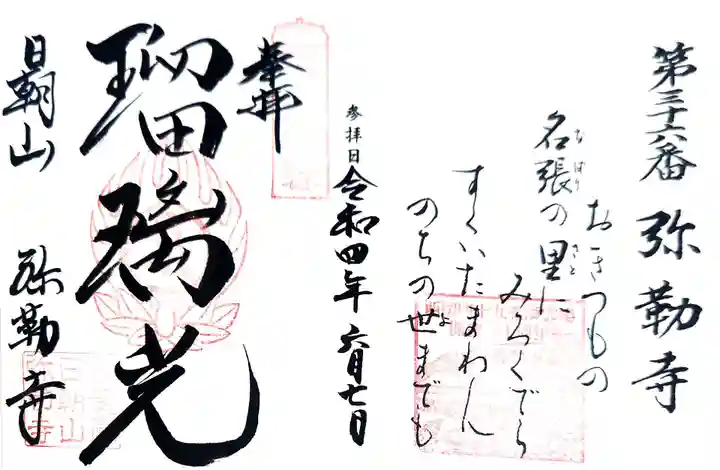 第三十六番 弥勒寺
おきつもの
名張の里に
なばり
さと
みろくでら
すくいたまわん
のちの世までも
よ
参拝日 令和四年六月七日
奉拝
瑠璃光
日朝山 弥勒寺